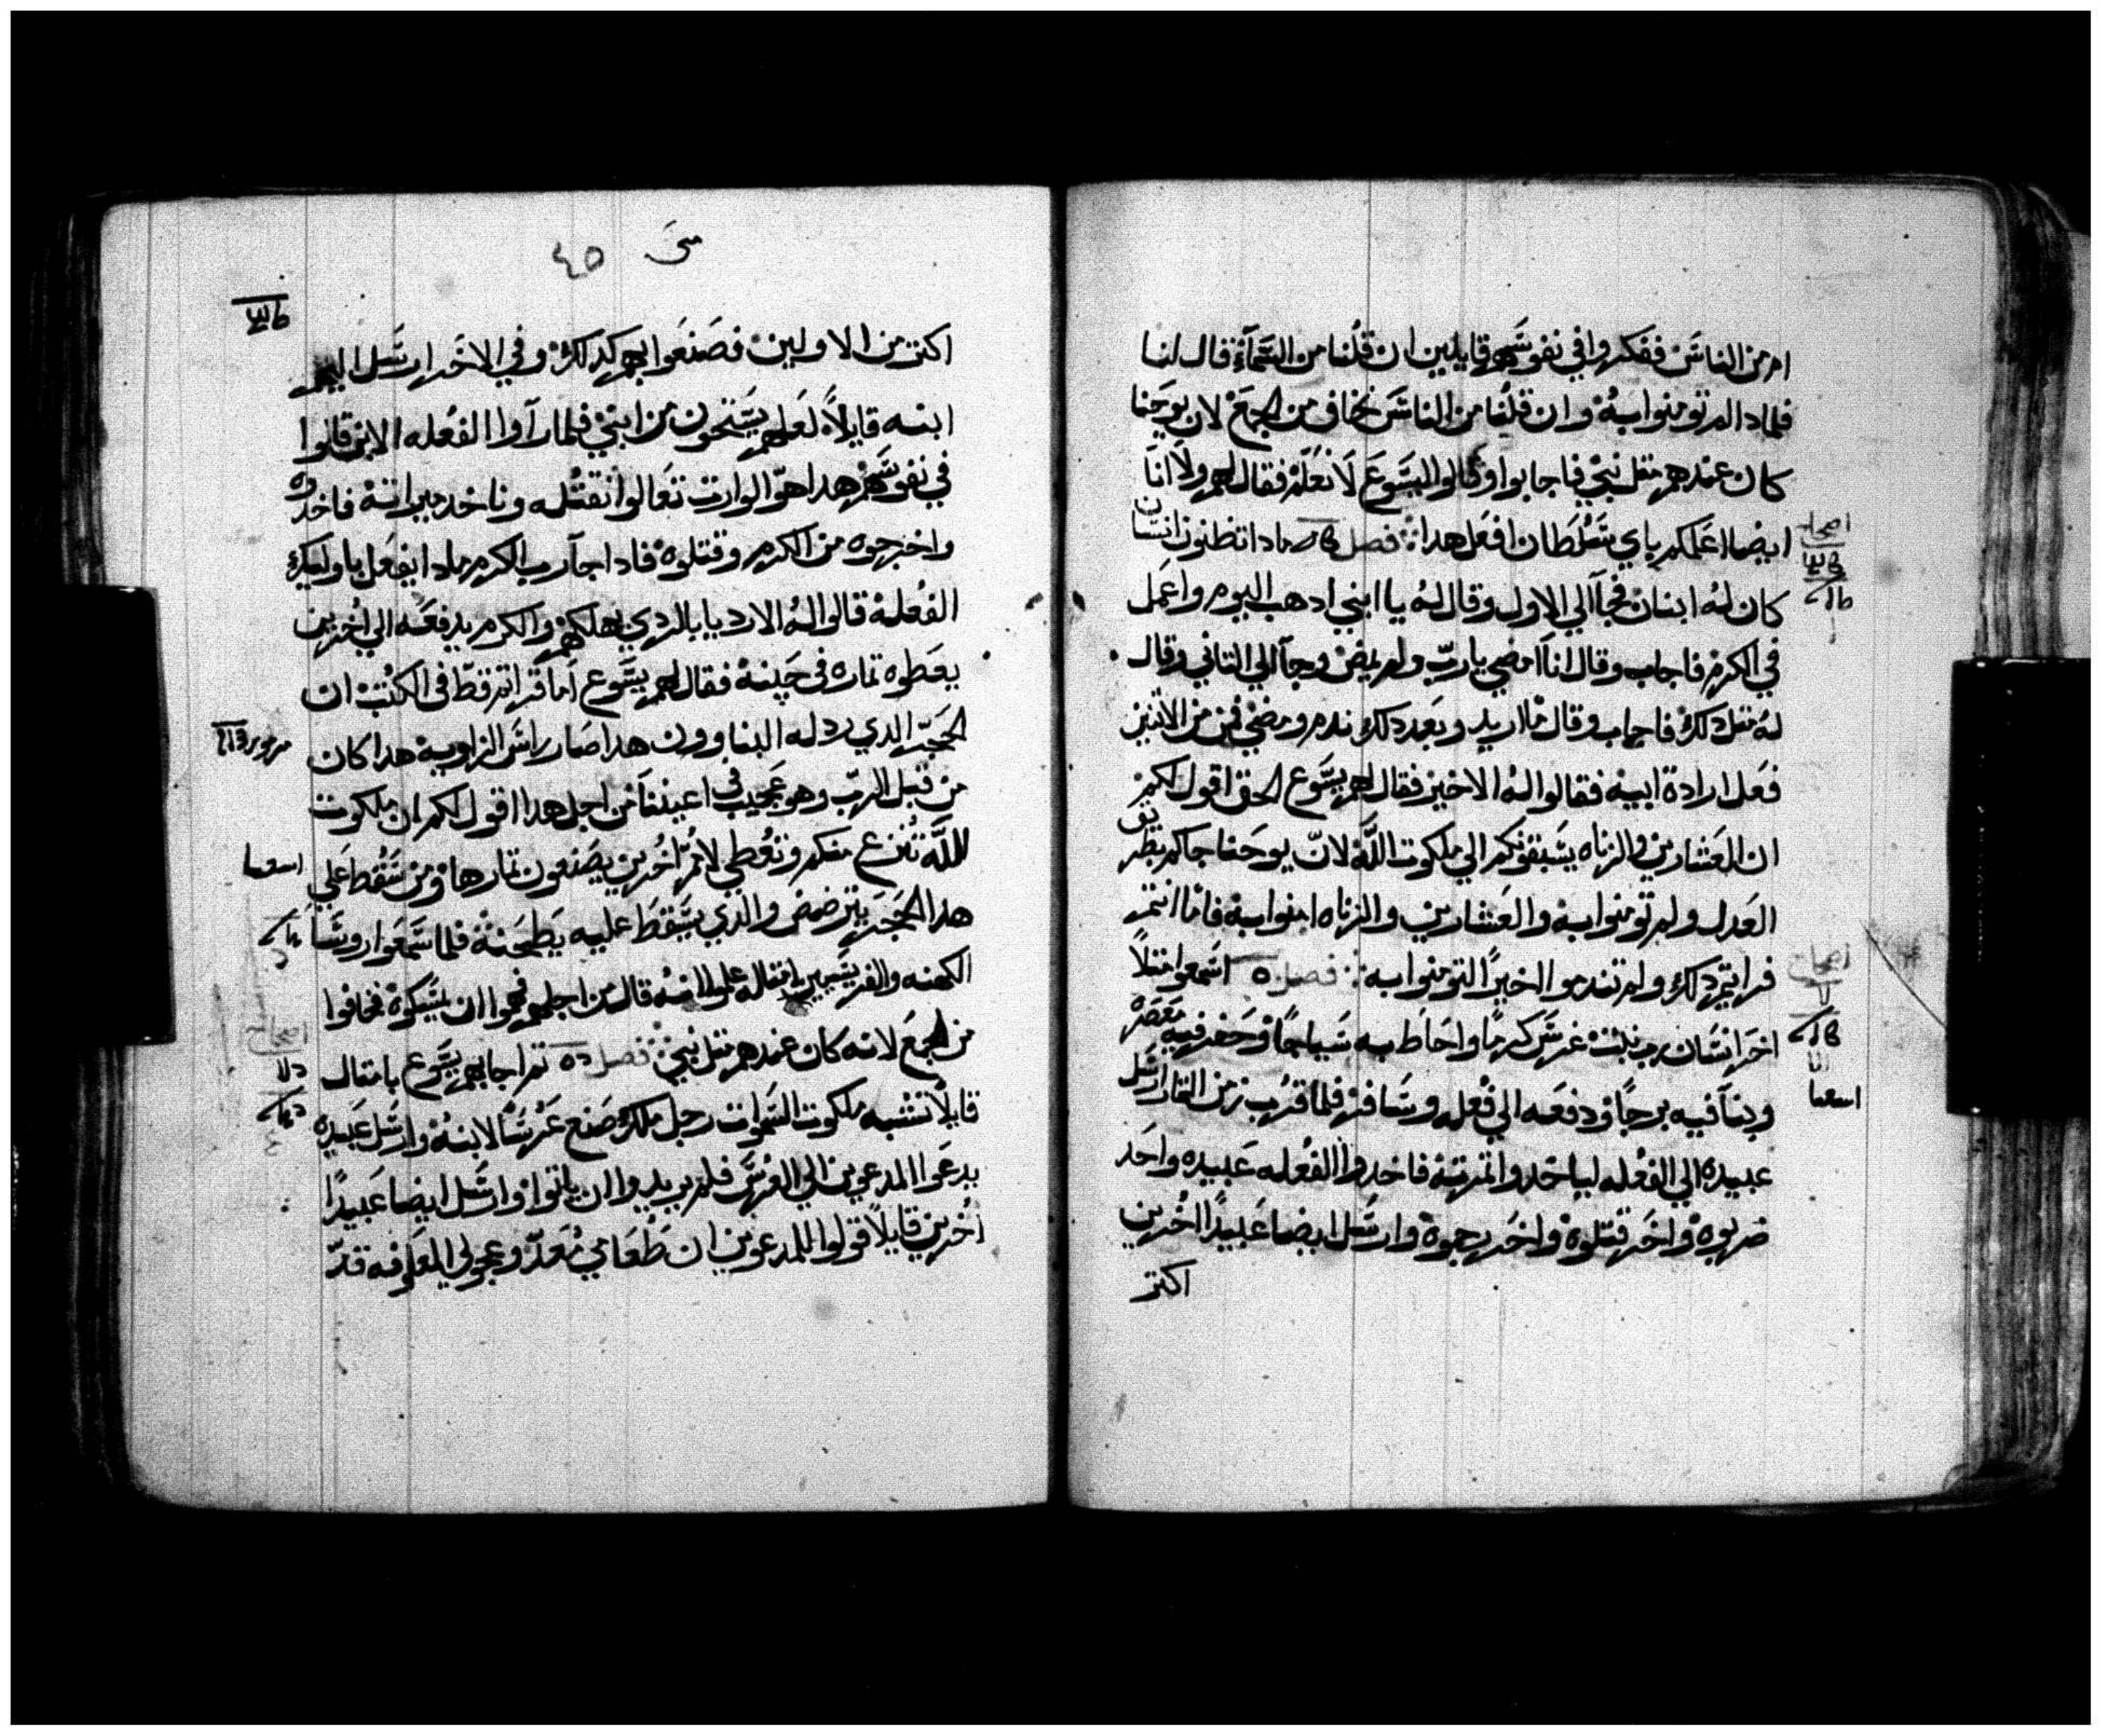 ام من الناس ففكروا في نفوسهم قايلين ان قلنا من السماء قال لنا
فلمادا لم تومنوا به وان قلنا من الناس نخاف من الجمع لان يوحنا
كان عندهم متل نبي فاجابوا وقالوا ليسوع لا نعلم فقال لهم ولا انا
ايضا اعلمكم باي سلطان افعل هدا فصل مادا تظنون انسان
كان له ابنان فجا الي الاول وقال له يا ابني ادهب اليوم واعمل
في الكرم فاجاب وقال انا امضي يا رب ولم يمض وجا الي التاني وقال
له متل دلك فاجاب وقال ما اريد وبعد دلك ندم ومضي فمن من الاتنين
فعل ارادة ابيه فقالوا له الاخير فقال لهم يسوع الحق اقول لكم
ان العشارين والزناه يسبقونكم الي ملكوت الله لان يوحنا جاكم بطريق
العدل ولم تومنوا به والعشارين والزناه امنوا به فاما انتم
فرايتم دلك ولم تندموا اخيرا لتومنوا به فصل اسمعوا متلا
اخر انسان رب بيت غرس كرما واحاط به سياجا وحفر فيه معصره
وبنا فيه برجا ودفعه الي فعله وسافر فلما قرب زمن التمار ارسل
عبيده الي الفعله لياخدوا تمرته فاخدوا الفعله عبيده واحد
ضربوه واخر قتلوه واخر رجموه وارسل ايضا عبيدا اخرين
اكتر
اصحاح
اصحاح
اسعيا
متى ٤٥
اكتر من الاولين فصنعوا بهم كدلك وفي الاخر ارسل اليهم
ابنه قايلا لعلهم يستحون من ابني فلما راوا الفعله الابن قالوا
في نفوسهم هدا هو الوارت تعالوا نقتله وناخد ميراته فاخدوه
واخرجوه من الكرم وقتلوه فادا جا رب الكرم مادا يفعل باوليك
الفعلة قالوا له الارديا بالردي يهلكهم والكرم يدفعه الي اخرين
يعطوه تماره في حينه فقال لهم يسوع اما قراتم قط في الكتب ان
الحجر الدي ردله البناوون هدا صار راس الزاوية هدا كان
من قبل الرب وهو عجيب في اعيننا من اجل هدا اقول لكم ان ملكوت
الله تنزع منكم وتعطي لامم اخرين يصنعون تمارها ومن سقط علي
هدا الحجر يترضض والدي يسقط عليه يطحنه فلما سمعوا روسا
الكهنه والفريسيين امتاله علموا انه قال من اجلهم فهموا ان يمسكوه فخافوا
من الجمع لانه كان عندهم متل نبي فصل تم اجابهم يسوع بامتال
قايلا تشبه ملكوت السموات رجل ملك صنع عرسا لابنه وارسل عبيده
يدعوا المدعوين الي العرس فلم يريدوا ان ياتوا وارسل ايضا عبيدا
اخرين قايلا قولوا للمدعوين ان طعامي معد وعجولي المعلوفه قد
مزمور
اسعيا
اصحاح